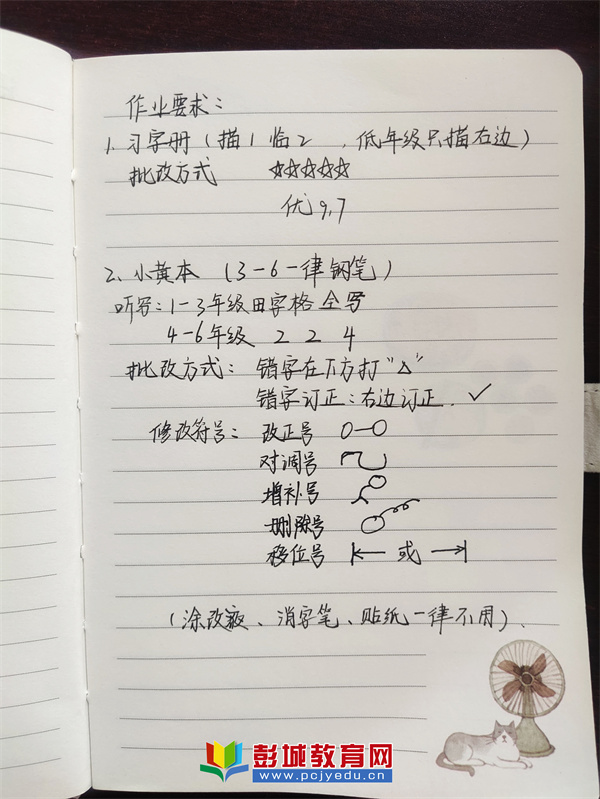 作业要求：
1. 习字册（描1 临2 ，低年级只描右边）
批改方式 ☆☆☆☆☆
优 9,7
2. 小黄本 （3-6一律钢笔）
听写：1-3年级田字格全写
4-6年级 2 2 4
批改方式： 错字在下方打“△”
错字订正：右边订正. ✓
修改符号： 改正号
对调号
增补号
删除号
移位号 |← 或 →|
（涂改液、消字笔、贴纸一律不用）.
彭城教育网
www.pcjyedu.cn